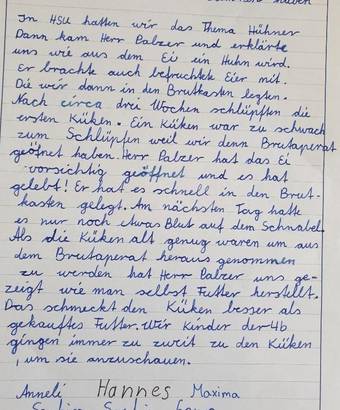 In HSU hatten wir das Thema Hühner
Dann kam Herr Palzer und erklärte
uns wie aus dem Ei ein Huhn wird.
Er brachte auch befruchtete Eier mit.
Die wir dann in den Brutkasten legten.
Nach circa drei Wochen schlüpften die
ersten Küken. Ein Küken war zu schwach
zum Schlüpfen weil wir denn Brutaperat
geöfnet haben. Herr Palzer hat das Ei
vorsichtig geöffnet und es hat
gelebt! Er hat es schnell in den Brut-
kasten gelegt. Am nächsten Tag hatte
es nur noch etwas Blut auf dem Schnabel.
Als die Küken alt genug waren um aus
dem Brutaperat heraus genommen
zu werden hat Herr Palzer uns ge-
zeigt wie man selbst Futter herstellt.
Das schmeckt den Küken besser als
gekauftes Futter. Wir Kinder der 4b
gingen immer zu zweit zu den Küken
, um sie anzuschauen.
Anneli Hannes Maxima